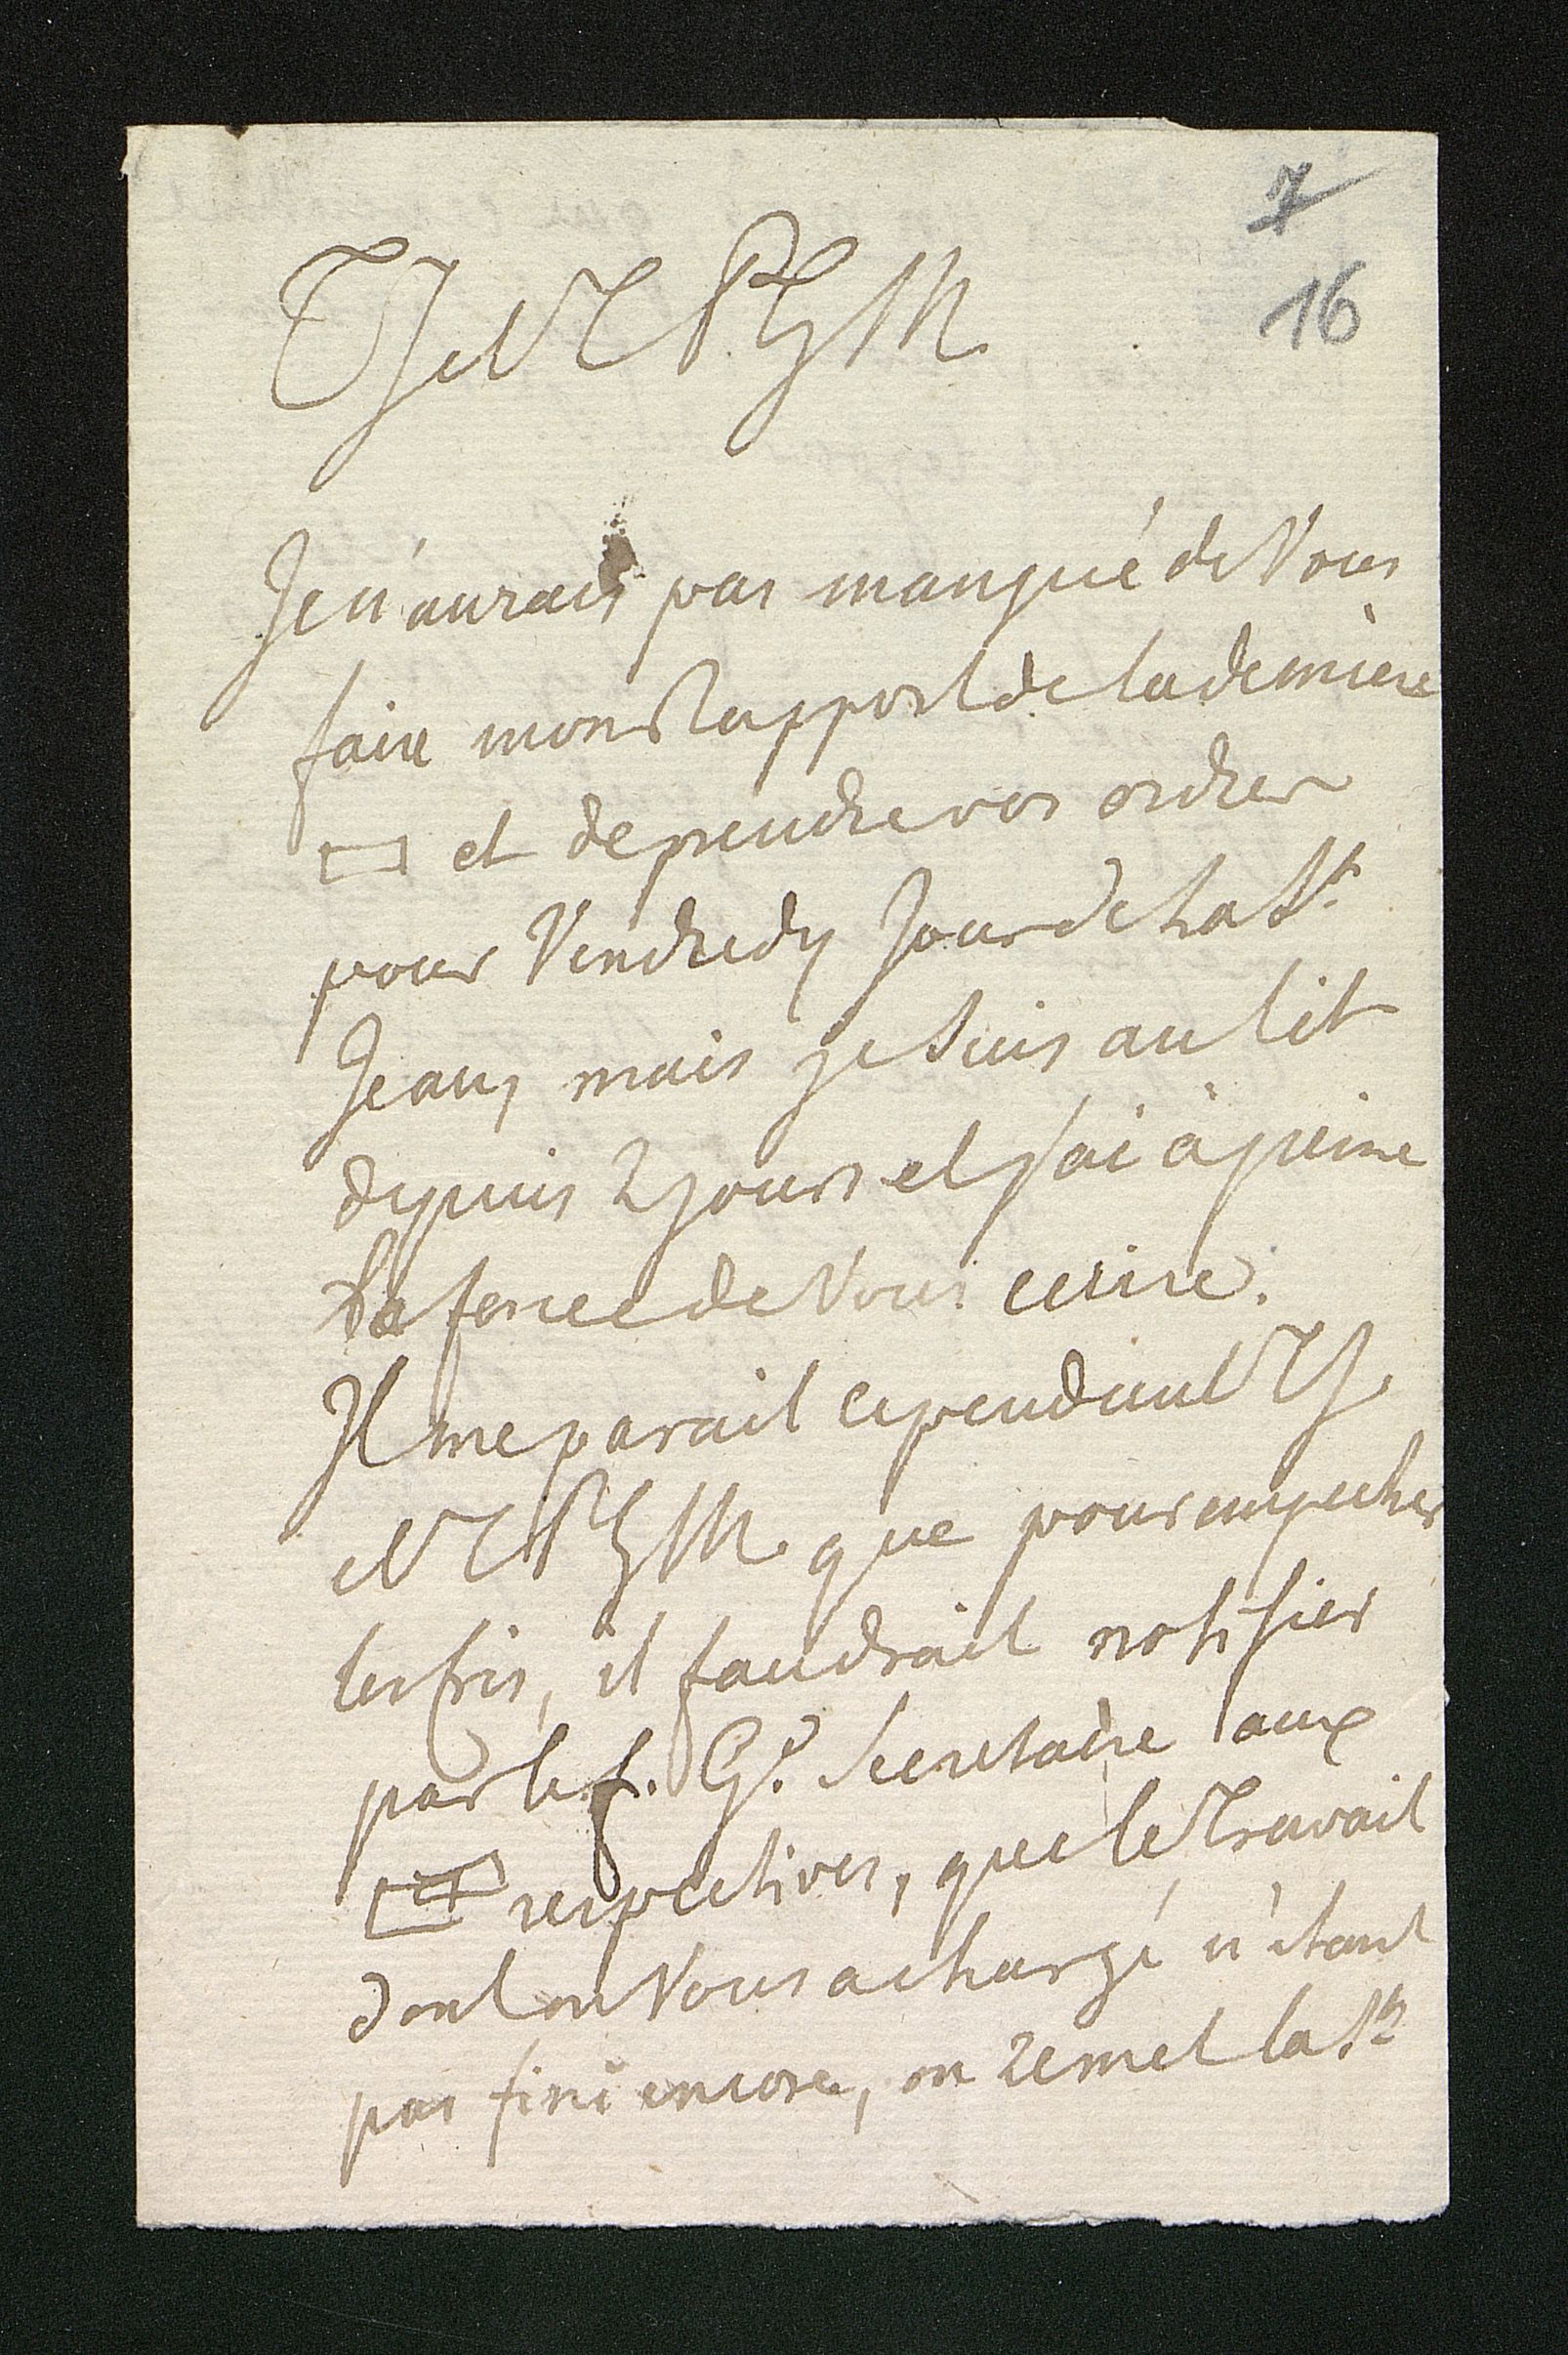 7
16
T J et V T R G M
Je n'aurais pas manqué de Vous
faire mon Rapport de la derniere
▭ et de prendre vos ordres
pour Vendredy Jour de la St.
Jean, mais je suis au lit
depuis 2 jours et j'ai à peine
la force de Vous ecrire.
Il me parait cependant T J
et V T R G M que pour empecher
les cris, il faudrait notifier
par le f. Gd. Secretaire aux
▭ respectives, que le Travail
dont on Vous a chargé n'étant
pas fini encore, on remet la St.